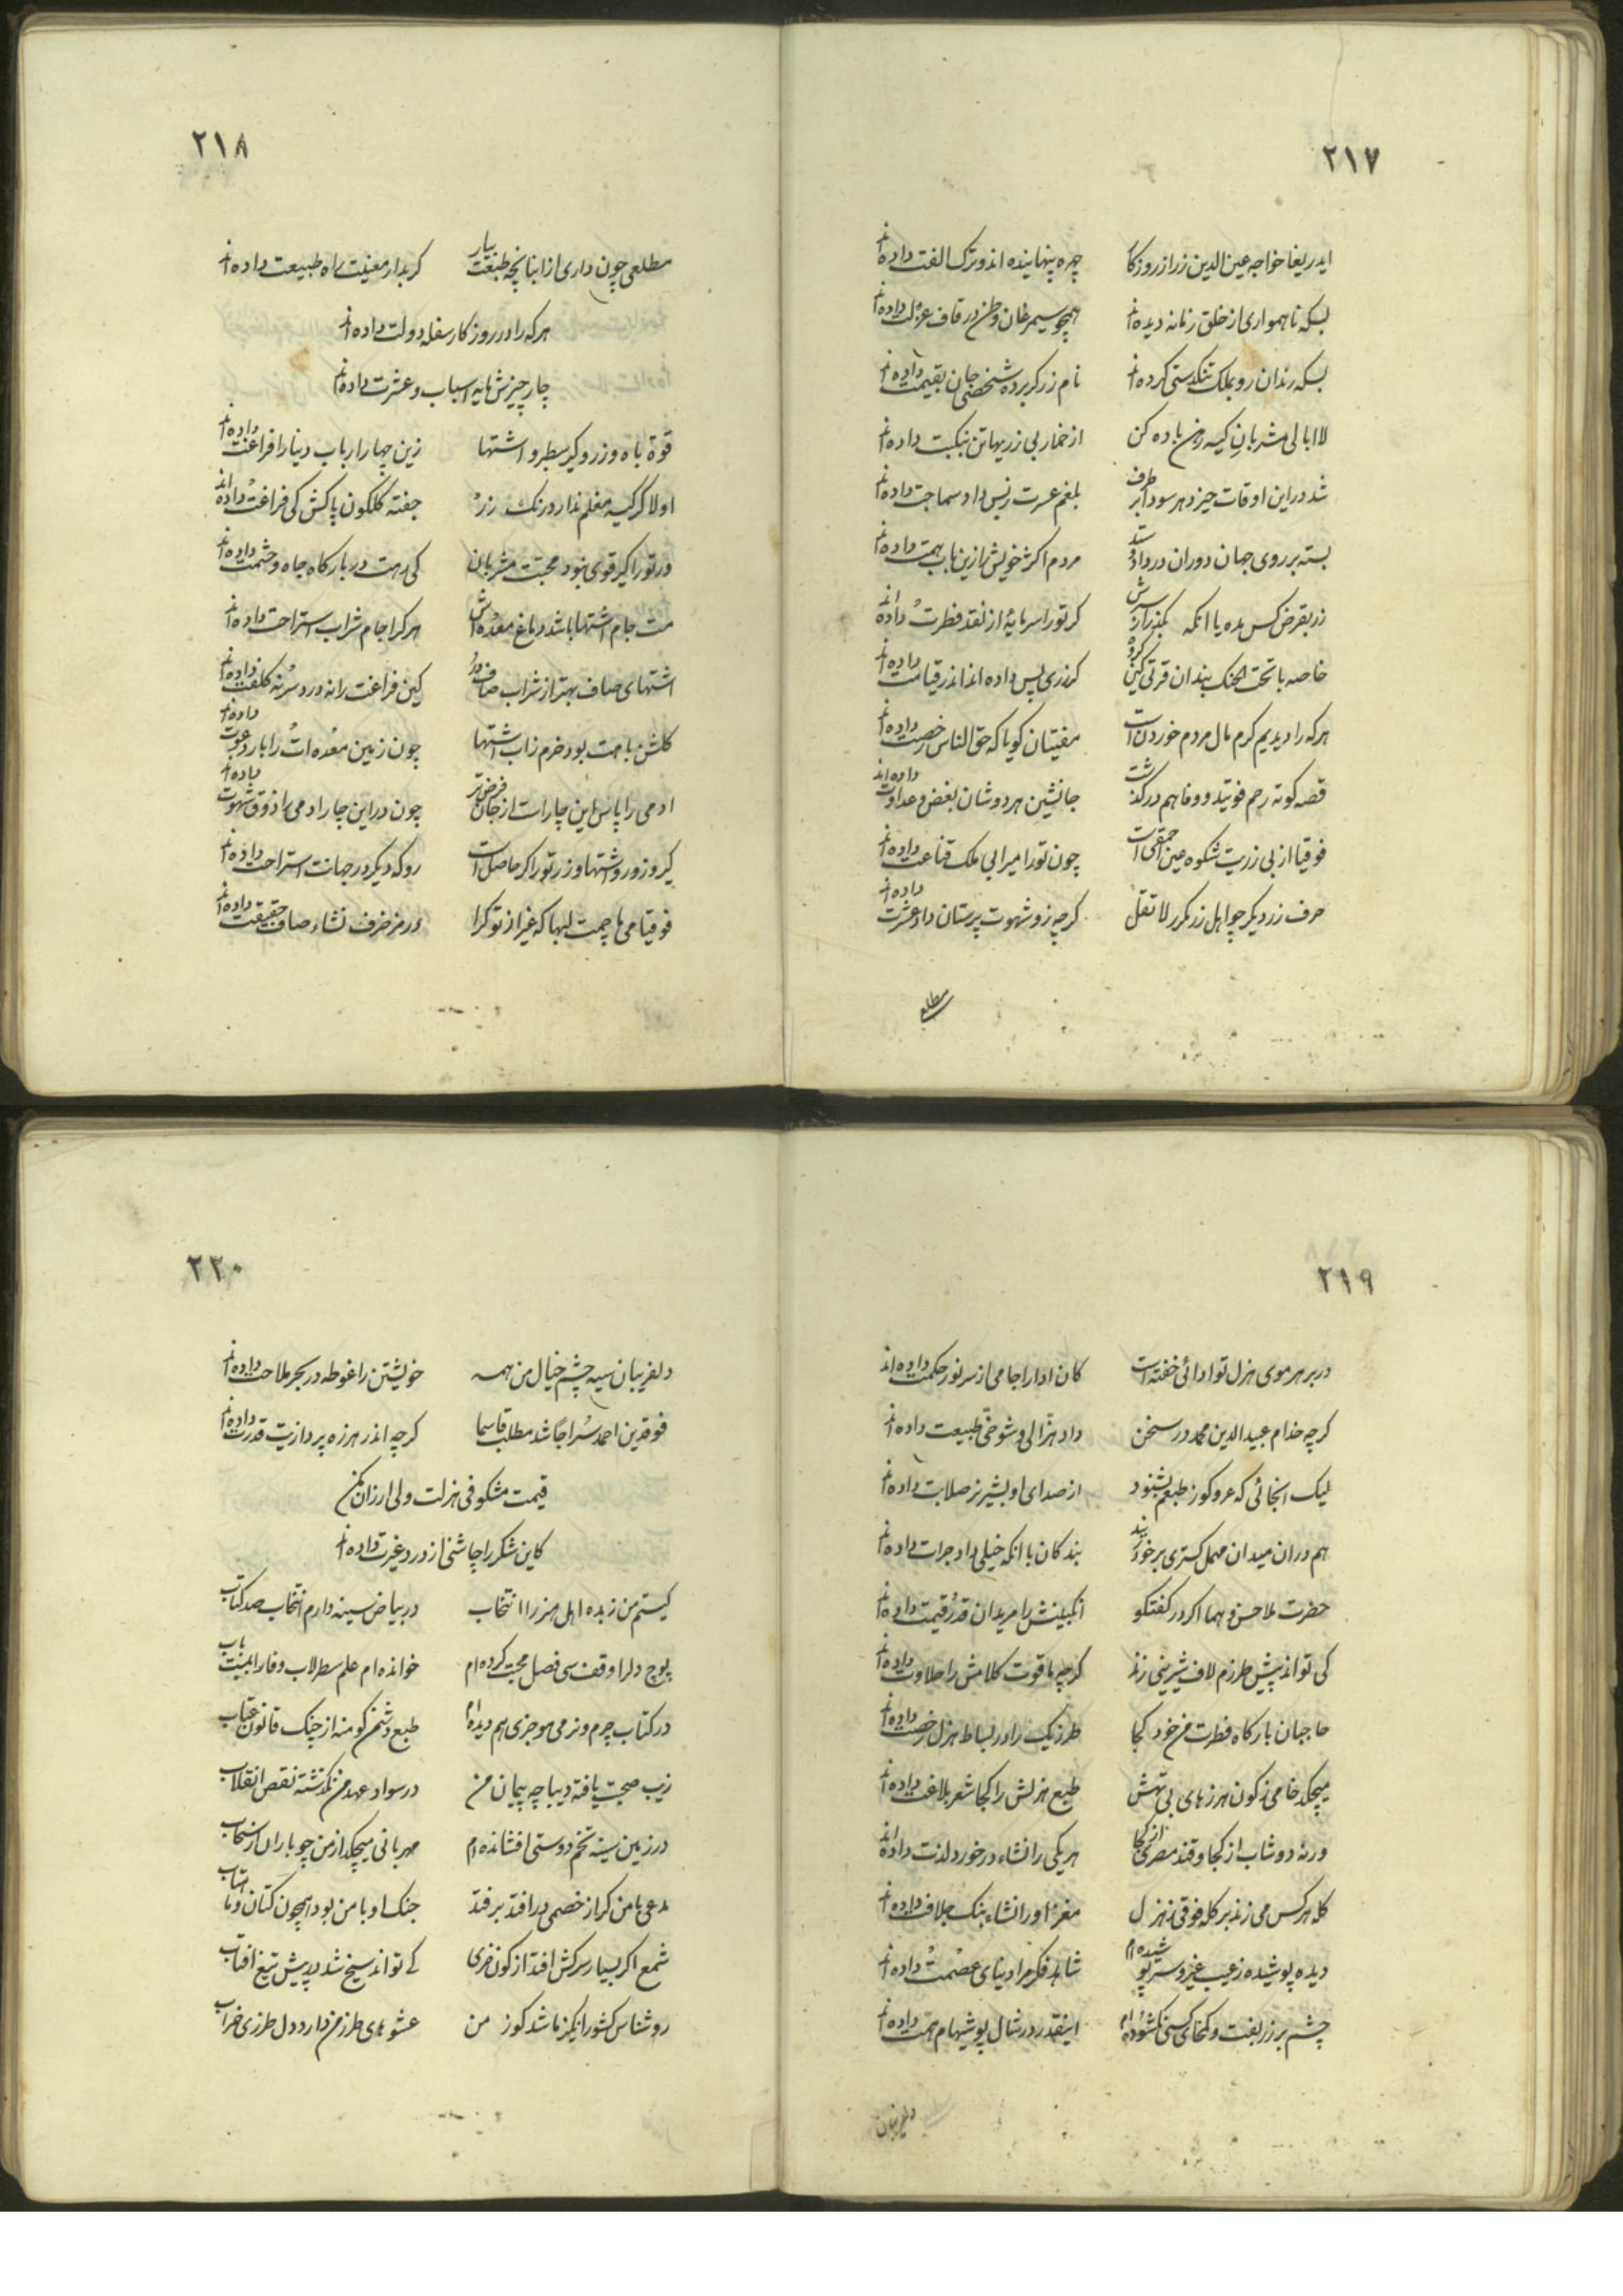 ٢١٧
ایدریغا خواجه عین الدین زر از روزکار چهره پنهانیده اند و ترک الفت داده اند
بسکه ناهمواری از خلق زمانه دیده اند همچو سیمرغان وطن در قاف عزلت داده اند
بسکه رندان رو بملک تنکدستی کرده اند نام زر کر برده شخصی جان بقیمت داده اند
لاابالی مشربان کیسه رهن باده کن از خمار بی زریها تن بنکبت داده اند
شد در این اوقات چیز دهر سودا بر طرف بلغم عسرت زبس داد سماجت داده اند
بسته بر روی جهان دوران در داد و ستد مردم اکثر خویش را زین باب همت داده اند
زر بقرض کس مده یا انکه بکذر از سرش کر تو را سرمایهٔ از نقد فطرت داده اند
خاصه با تحت الحنک بندان قرتی کین کروه کر زری پس داده اند اندر قیامت داده اند
هرکه را دیدیم کرم مال مردم خوردن است مفتیان کویا که حق الناس رخصت داده اند
قصه کوته رحم فوتید و وفا هم درکذشت جانشین هر دوشان بغض و عداوت داده اند
فوقیا از بی زریت شکوه عین احمقی است چون تو را میرابی ملک قناعت داده اند
حرف زر دیکر چو اهل زر مکرر لا تقل کرچه زو شهوت پرستان داد عشرت داده اند
مطلعی
٢١٨
مطلعی چون داری از ابنا نچه طبعت بیار کر بدار معنیت راه طبیعت داده اند
هرکه را در روزکار سفله دولت داده اند
چار چیزش مایه اسباب و عشرت داده اند
قوة باه و زر و کیر سطبر و اشتها زین چهار ارباب دنیا را فراغت داده اند
اولا کر کیسه مغلم ندارد رنک زر جفته کلکون پاکش کی فراغت داده اند
ور تو را کیر قوی نبود محبت مشربان کی رهت در بارکاه جاه و حشمت داده اند
مست جام اشتها باشد دماغ معده اش هر کرا جام شراب استراحت داده اند
اشتهای صاف بهتر از شراب صاف دان کین فراغت را نه درد سر نه کلفت داده اند
کلشن باهمت بود خرم ز آب اشتها چون زمین معده ات را بار دعوت داده اند
ادمی را پاس این چار است از جان فرض تر چون در این چار ادمی را ذوق شهوت داده اند
کیر و زور و اشتها و زر تو را کر حاصل است رو که دیکر در جهانت استراحت داده اند
فوقیا می ها چمت لبها که غیر از تو کرا در مزخرف نشاء صاف حقیقت داده اند
٢١٩
در بر هر موی هزل تو ادائی خفته است کان ادا را جامی از سر نور حکمت داده اند
کرچه خدام عبید الدین محمد در سخن داد هزالی و شوخی طبیعت داده اند
لیک انجائی که عر و کوز طبعم بشنود از صدای او بشیر نر صلابت داده اند
هم در ان میدان مهمل کستری بر خورند بندکان با انکه خیلی داد جرات داده اند
حضرت ملا حسن و هما اکر در کفتکو انکبینش را مریدان قدر و قیمت داده اند
کی تواند پیش طرزم لاف شیرینی زند کرچه یاقوت کلامش را حلاوت داده اند
حاجبان بارکاه فطرت من خود کجا طرز یک را در بساط هزل رخصت داده اند
میچکد خامی ز کون هرزهای بی تهش طبع هزلش را کجا شعر بلاغت داده اند
ورنه دوشاب از کجا و قند مصری از کجا هر یکی را نشاء در خورد لذت داده اند
کله هرکس می زند بر کله فوقی ز هزل مغز او را نشاء بنک جلافت داده اند
دیده پوشیده ز عیب غیر و سر پوشیده ام شاهد فکر مرا دنیای عصمت داده اند
چشم بر زربفت و کمخای کسی نکشوده ام اینقدر در شال پوشیهام همت داده اند
دلفریبان
٢٢٠
دلفریبان سیه چشم خیال من همه خویشتن را غوطه در بحر ملاحت داده اند
فوقدین احمد سراجا شد مطلب قاسما کرچه اندر هرزه پردازیت قدرت داده اند
قیمت مشکوفی هزلت ولی ارزان مکن
کاین شکر را چاشنی از درد غیرت داده اند
کیستم من زبده اهل هنر را انتخاب در بیاض سینه دارم انتخاب صد کتاب
لوح دلرا وقف سی فصل محبت کرده ام خوانده ام علم سطرلاب وفا را بیست باب
در کتاب چرم و نرمی موجزی هم دیده ام طبع دشمن کو منه از چنک قانون عتاب
زیب صحبت یافته دیباچه پیمان من در سواد عهد من نکذشته نقص انقلاب
در زمین سینه تخم دوستی افشانده ام مهربانی میچکد از من چو باران از سحاب
مدعی با من کر از خصمی درافتد برفتد جنک او با من بود همچون کتان و ماهتاب
شمع اکر بسیار سرکش افتد از کون خری کے تواند سیخ شد در پیش تیغ افتاب
روشناس کشور انکیز باشد کوز من عشوهای طرز من دارد دل طرزی خراب